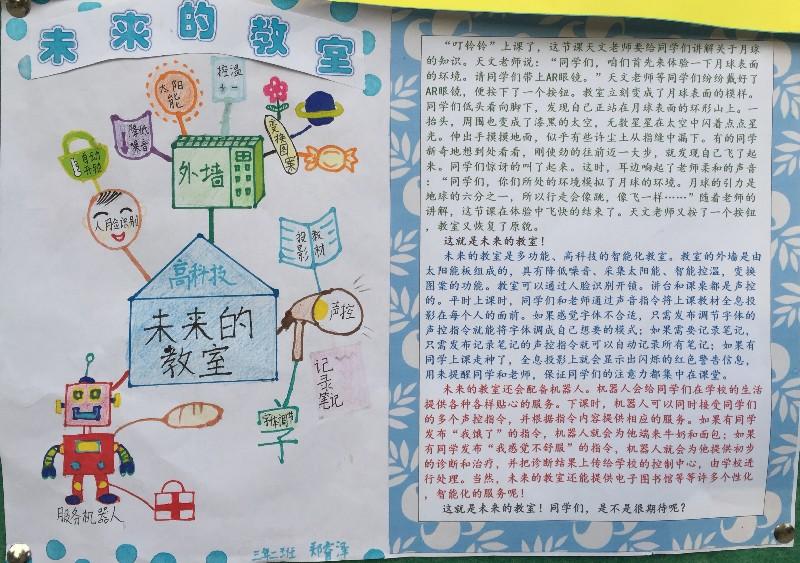 未来的教室
太阳能
控温
降低噪音
变换图案
自动开锁
外墙
人脸识别
高科技
未来的
教室
投影
教材
声控
记录
笔记
字体调节
字
服务机器人
三年二班
“叮铃铃”上课了，这节课天文老师要给同学们讲解关于月球
的知识。天文老师说：“同学们，咱们首先来体验一下月球表面
的环境。请同学们带上AR眼镜。”天文老师等同学们纷纷戴好了
AR眼镜，便按下了一个按钮。教室立刻变成了月球表面的模样。
同学们低头看向脚下，发现自己正站在月球表面的环形山上。一
抬头，周围也变成了漆黑的太空，无数星星在太空中闪着点点星
光。伸出手摸摸地面，似乎有些许尘土从指缝中漏下。有的同学
新奇地想到处看看，刚使劲的往前迈一大步，就发现自己飞了起
来。同学们惊讶的叫了起来。这时，耳边响起了老师柔和的声音
：“同学们，你们所处的环境模拟了月球的环境。月球的引力是
地球的六分之一，所以行走会像跳，像飞一样……”随着老师的
讲解，这节课在体验中飞快的结束了。天文老师又按了一个按钮
，教室又恢复了原貌。
这就是未来的教室！
未来的教室是多功能、高科技的智能化教室。教室的外墙是由
太阳能板组成的，具有降低噪音、采集太阳能、智能控温，变换
图案的功能。教室可以通过人脸识别开锁。讲台和课桌都是声控
的。平时上课时，同学们和老师通过声音指令将上课教材全息投
影在每个人的面前。如果感觉字体不合适，只需发布调节字体的
声控指令就能将字体调成自己想要的模式；如果需要记录笔记，
只需发布记录笔记的声控指令就可以自动记录所有笔记；如果有
同学上课走神了，全息投影上就会显示出闪烁的红色警告信息，
用来提醒同学和老师，保证同学们的注意力都集中在课堂。
未来的教室还会配备机器人。机器人会给同学们在学校的生活
提供各种各样贴心的服务。下课时，机器人可以同时接受同学们
的多个声控指令，并根据指令内容提供相应的服务。如果有同学
发布“我饿了”的指令，机器人就会为他端来牛奶和面包；如果
有同学发布“我感觉不舒服”的指令，机器人就会为他提供初步
的诊断和治疗，并把诊断结果上传给学校的控制中心，由学校进
行处理。当然，未来的教室还能提供电子图书馆等等许多个性化
，智能化的服务呢！
这就是未来的教室！同学们，是不是很期待呢？